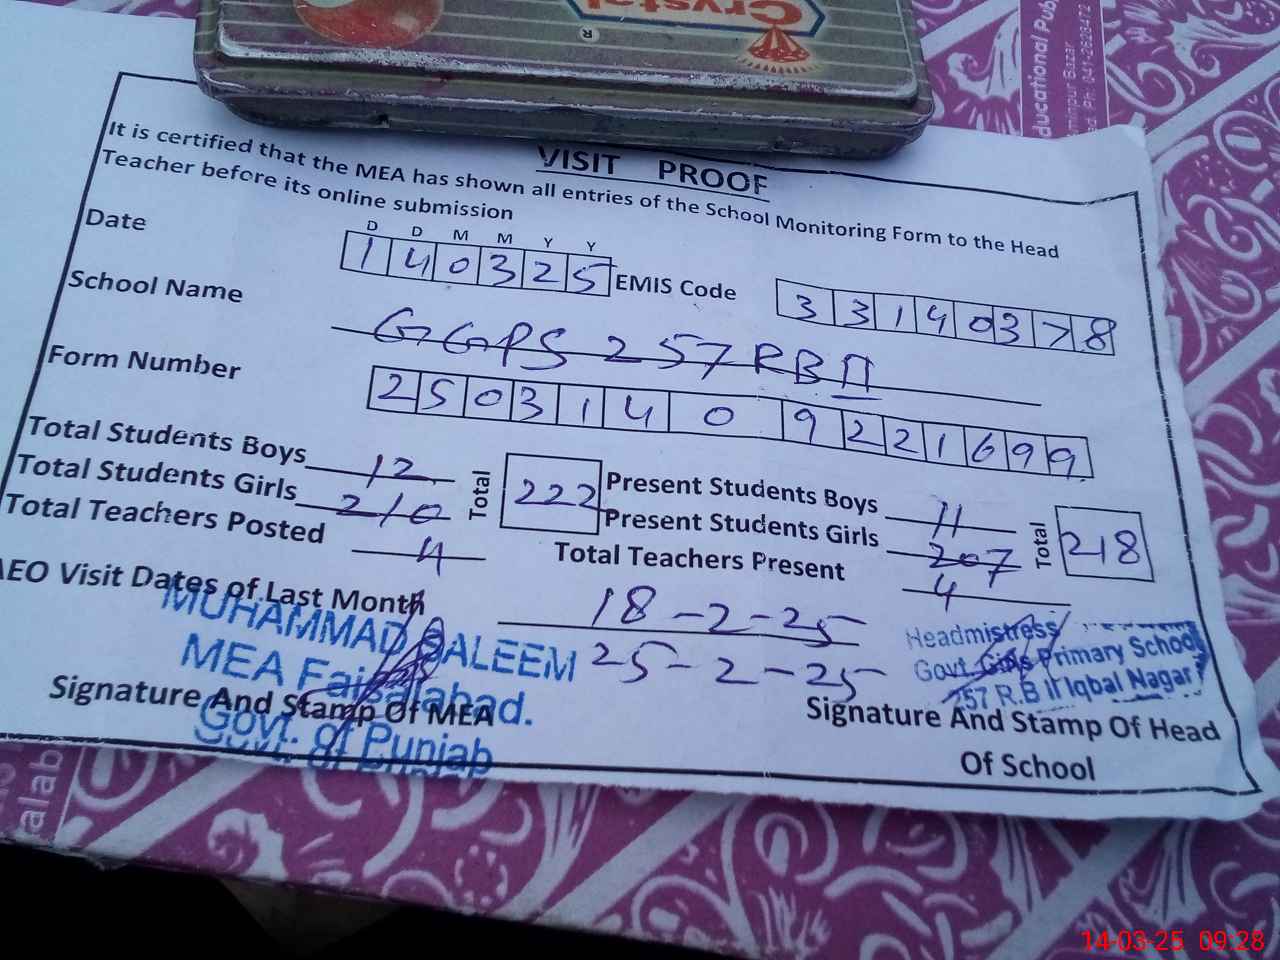 Crystal
®
ducational Pub
aminpur Bazar
d. Ph: 041-2623472
VISIT PROOF
It is certified that the MEA has shown all entries of the School Monitoring Form to the Head
Teacher before its online submission
D D M M Y Y
Date 1 4 0 3 2 5 EMIS Code 3 3 1 4 0 3 7 8
School Name GGPS 257 RB II
Form Number 2 5 0 3 1 4 0 9 2 2 1 6 9 9
Total Students Boys 12 Total 222 Present Students Boys 11 Total 218
Total Students Girls 210 Present Students Girls 207
Total Teachers Posted 4 Total Teachers Present 4
AEO Visit Dates of Last Month 18-2-25
25-2-25
MUHAMMAD SALEEM
MEA Faisalabad.
Govt. of Punjab
Signature And Stamp Of MEA
Headmistress
Govt. Girls Primary School
257 R.B II Iqbal Nagar
Signature And Stamp Of Head
Of School
alab
14-03-25 09:28